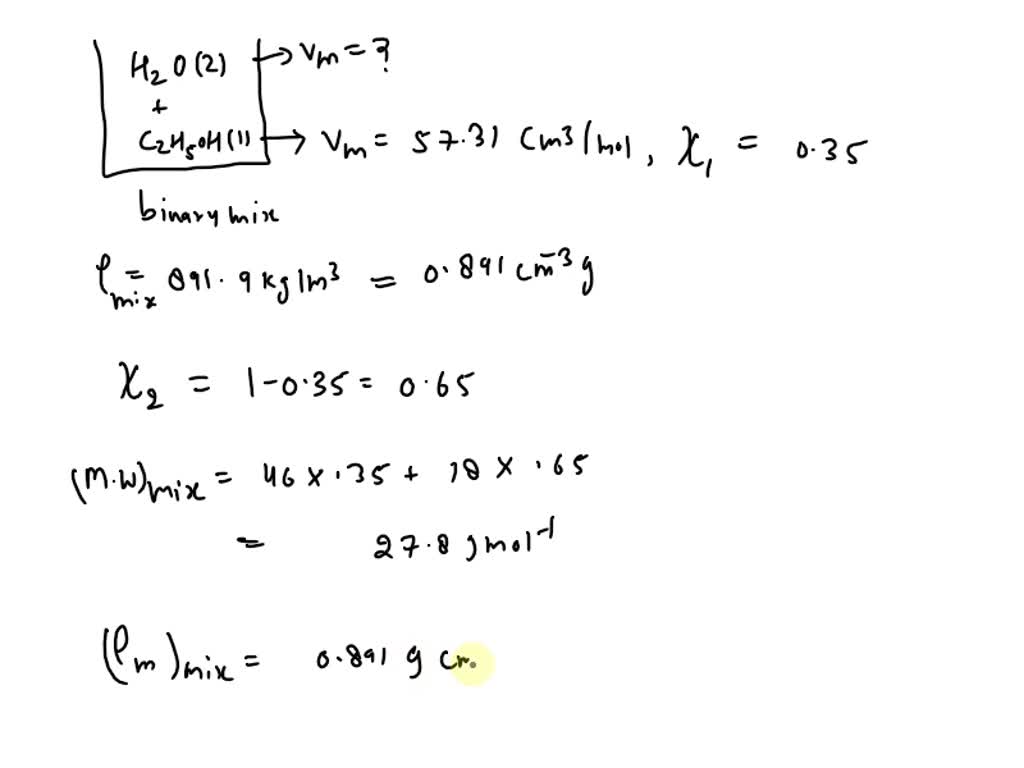 H₂O(2) → Vm = ?
+
C₂H₅OH(1) → Vm = 57.31 Cm3/mol, X₁ = 0.35
binary mix
ρmix = 891.9 kg/m³ = 0.891 cm⁻³ g
X₂ = 1-0.35 = 0.65
(M.W)mix = 46 x .35 + 18 x .65
= 27.8 g mol⁻¹
(ρm)mix = 0.891 g cm